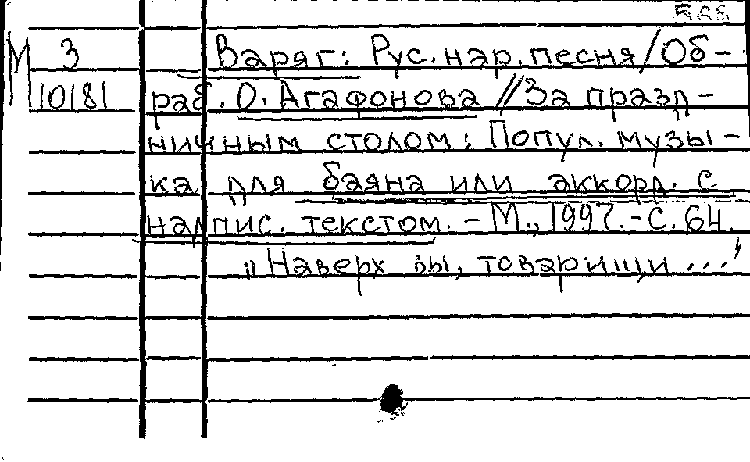 М З Варяг: Рус. нар. песня / Об-
10181 раб. О. Агафонова // За празд-
ничным столом: Попул. музы-
ка для баяна или аккорд. с
надпис. текстом. - М., 1997. - С. 64.
"Наверх вы, товарищи ..."